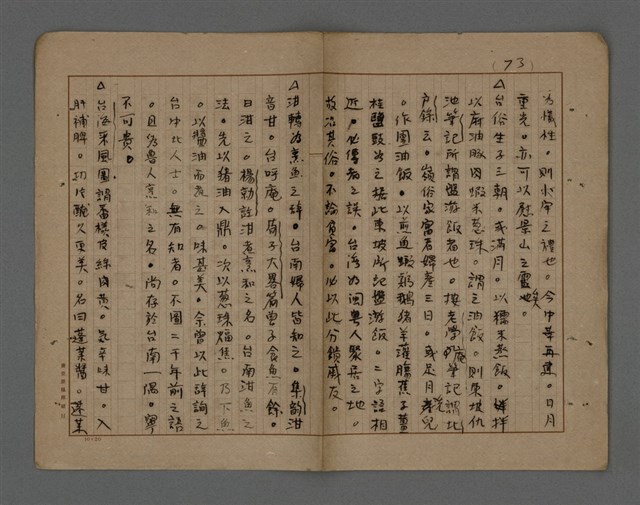 (73)
為犧牲。則小宰之禮也。今中華再建。日月
重光。亦可以慰景山之靈矣。
△台俗生子三朝。或滿月。以糯米蒸飯。鮮拌
以麻油豚肉蝦米葱珠。謂之油飯。則東坡仇
池筆記所謂盤游飯者也。按老學庵筆記謂北
戶錄云。嶺俗家富者婦產三日。或足月洗兒
。作團油飯。以煎魚蝦鷄鵝豬羊灌腸蕉子薑
桂鹽豉為之。據此東坡所記盤游飯。二字語相
近。必傳者之誤。台灣為閩粵人聚居之地。
故沿其俗。不論貧富。必以此分饋戚友。
△泔轉為烹魚之辭。台南婦人皆知之。集韻泔
音甘。台呼庵。荀子大畧篇曾子食魚有餘。
曰泔之。楊勍註泔者烹和之名。台南泔魚之
法。先以豬油入鼎。次以葱珠福焦。乃下魚
。以醬油而煮之。味甚美。余曾以此辭詢之
台中北人士。無有知者。不圖二千年前之語
。且為魯人烹和之名。尚存於台南一偶。寧
不可貴。
△台海采風圖謂番檨皮綠肉黃。氣辛味甘。入
肝補脾。切片醃久更美。名曰蓬萊醬。蓬萊
10×20